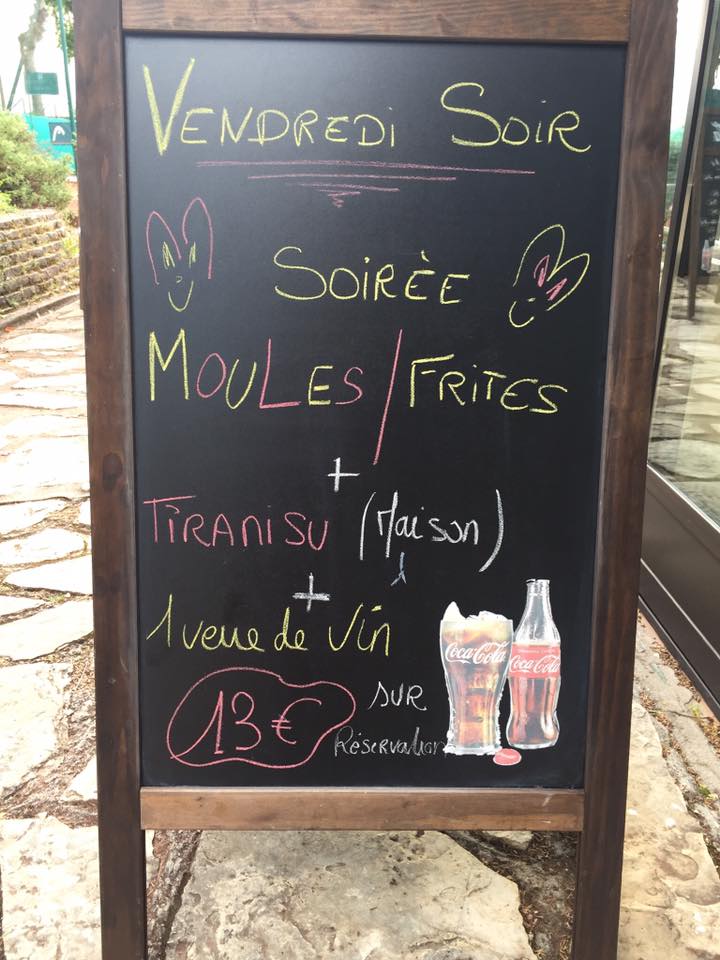 VENDREDi SOiR
SOiRÈE
MOULES/FRiTES
+
TiRANiSU (Maison)
+
1 verre de Vin
13€ SUR
Réservation
Coca-Cola
Coca-Cola
HEAD